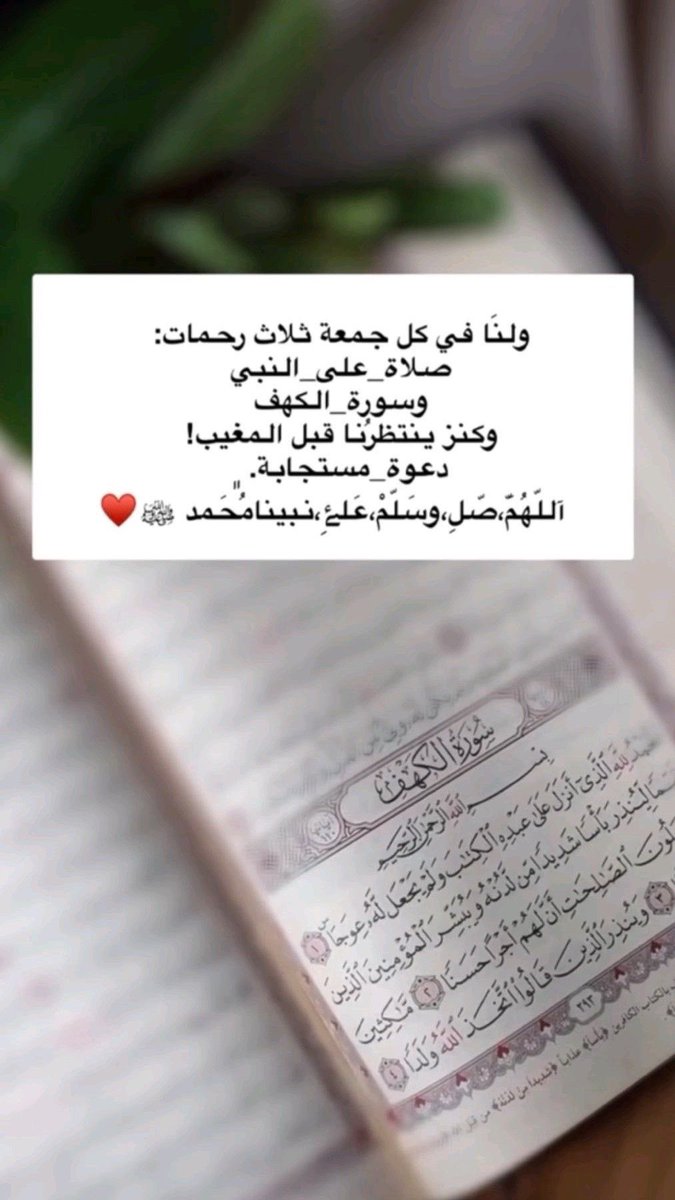 ولنَا في كل جمعة ثلاث رحمات:
صلاة_على_النبي
وسورة_الكهف
وكنز ينتظرُنا قبل المغيب!
دعوة_مستجابة.
اَللّهُمّ،صّلِ،وسَلّمْ،عَلئِ،نبينامُحَمد ﷺ ♥️
سُورَةُ الكَهْفِ
بِسْمِ اللَّهِ الرَّحْمَٰنِ الرَّحِيمِ
لِلَّهِ الَّذِي أَنزَلَ عَلَىٰ عَبْدِهِ الْكِتَابَ وَلَمْ يَجْعَل لَّهُ عِوَجَا ١
لِّيُنذِرَ بَأْسًا شَدِيدًا مِّن لَّدُنْهُ وَيُبَشِّرَ الْمُؤْمِنِينَ الَّذِينَ
الصَّالِحَاتِ أَنَّ لَهُمْ أَجْرًا حَسَنًا ٢ مَّاكِثِينَ
٣ وَيُنذِرَ الَّذِينَ قَالُوا اتَّخَذَ اللَّهُ وَلَدًا ٤
٢٩٣